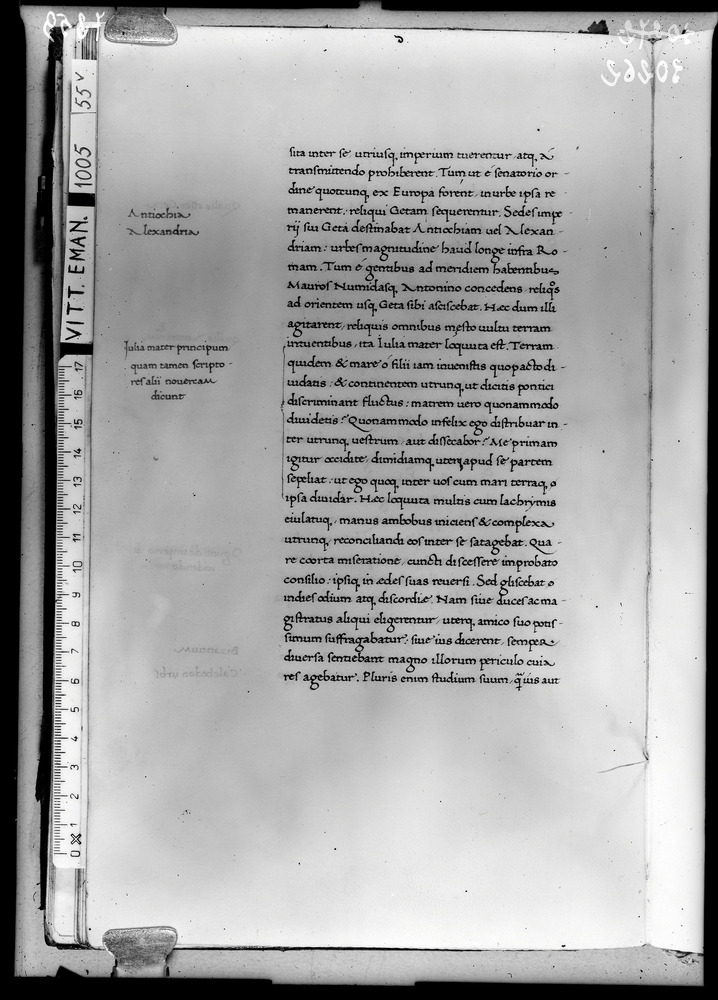 sita inter se utriusq. imperium tuerentur, atq. á
transmittendo prohiberent. Tum ut é senatorio or-
dine quotcunq. ex Europa forent, in urbe ipsa re-
manerent: reliqui Getam sequerentur. Sedes impe-
rij sui Geta destinabat Antiochiam uel Alexan-
driam: urbes magnitudine haud longe infra Ro-
mam. Tum é gentibus ad meridiem habentibus
Mauros Numidasq. Antonino concedens, reliqºs
ad orientem usq. Geta sibi asciscebat. Hæc dum illi
agitarent, reliquis omnibus męsto uultu terram
intuentibus, ita Iulia mater loquuta est. Terram
quidem & mare ó filii iam inuenistis quo pacto di-
uidatis: & continentem utrunq. ut dicitis pontici
discriminant fluctus: matrem uero quonam modo
diuidetis? Quonam modo infelix ego distribuar in-
ter utrunq. uestrum, aut dissecabor? Me primam
igitur occidite, dimidiamq. uterq. apud se partem
sepeliat: ut ego quoq. inter uos cum mari terraq.
ipsa diuidar. Hæc loquuta multis cum lachrymis
eiulatuq. manus ambobus iniciens & complexa
utrunq. reconciliandi eos inter se satagebat. Qua-
re coorta miseratione, cuncti discessere improbato
consilio: ipsiq. in ædes suas reuersi. Sed gliscebat
indies odium atq. discordie. Nam siue duces ac ma-
gistratus aliqui eligerentur, uterq. amico suo potis-
simum suffragabatur: siue ius dicerent, semper
diuersa sentiebant magno illorum periculo cuia
res agebatur. Pluris enim studium suum, q̃ ius aut
Antiochia
Alexandria
Iulia mater principum
quam tamen scripto-
res alii nouercam
dicunt
VITT. EMAN. 1005 55v
0 1 2 3 4 5 6 7 8 9 10 11 12 13 14 15 16 17
30262